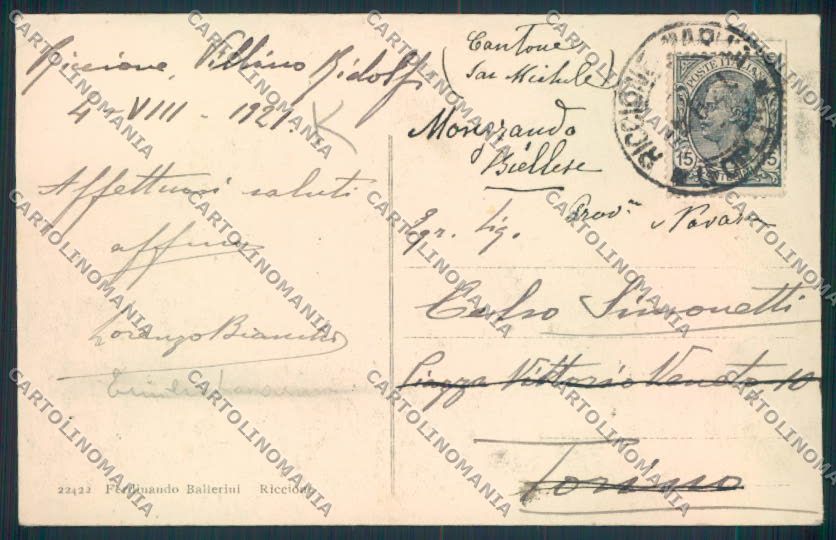 Riccione, Villino Ridolfi
4 - VIII - 1921.
Affettuosi saluti
affmo
Lorenzo
22422 Ferdinando Ballerini Riccione
(Cantone
San Michele)
Mongrando
Biellese
Prov. Novara
Egr. Sig.
Celso Simonetti
Piazza Vittorio Veneto, 10
Torino
POSTE ITALIANE
15
RICCIONE
CARTOLINOMANIA